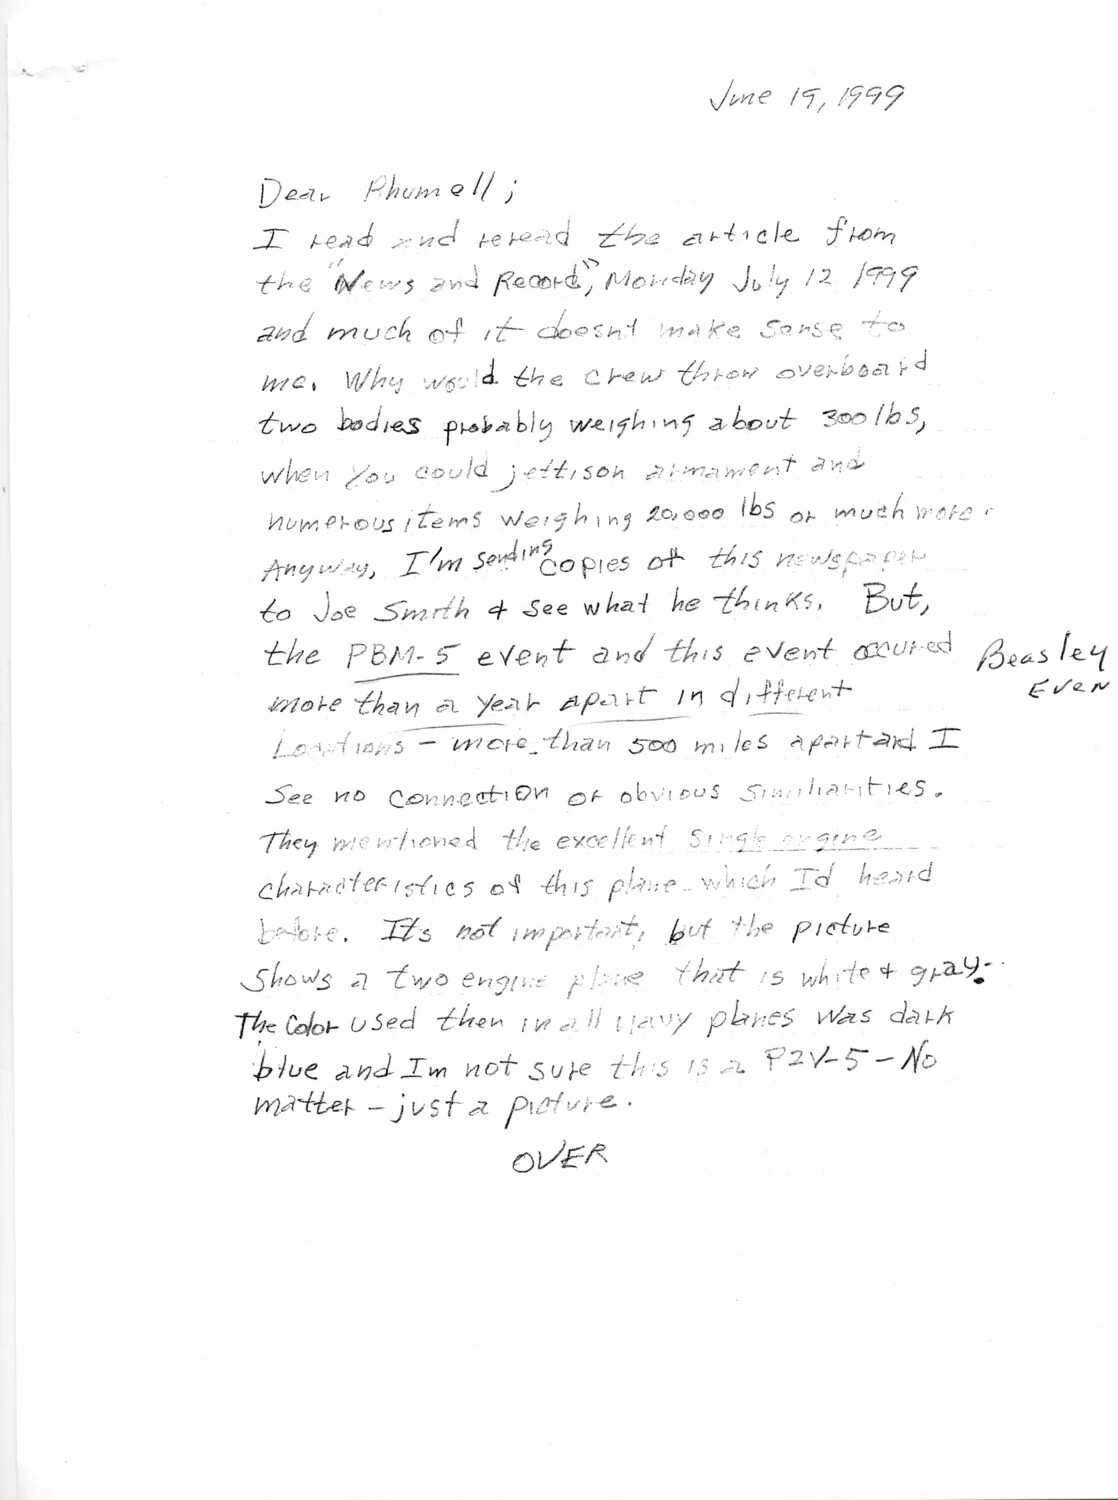 June 19, 1999
Dear Rhumell;
I read and reread the article from
the "News and Record", Monday July 12 1999
and much of it doesnt make sense to
me. Why would the crew throw overboard
two bodies probably weighing about 300 lbs,
when you could jettison armament and
numerous items weighing 20,000 lbs or much more.
Anyway, I'm sending copies of this newspaper
to Joe Smith & see what he thinks. But,
the PBM-5 event and this event occured
Beasley
Even
more than a year apart in different
Locations - more than 500 miles apart and I
see no connection or obvious similiarities.
They mentioned the excellent single engine
characteristics of this plane - which I'd heard
before. It's not important, but the picture
shows a two engine plane that is white & gray.
The color used then in all Navy planes was dark
blue and Im not sure this is a P2V-5 - No
matter - just a picture.
OVER